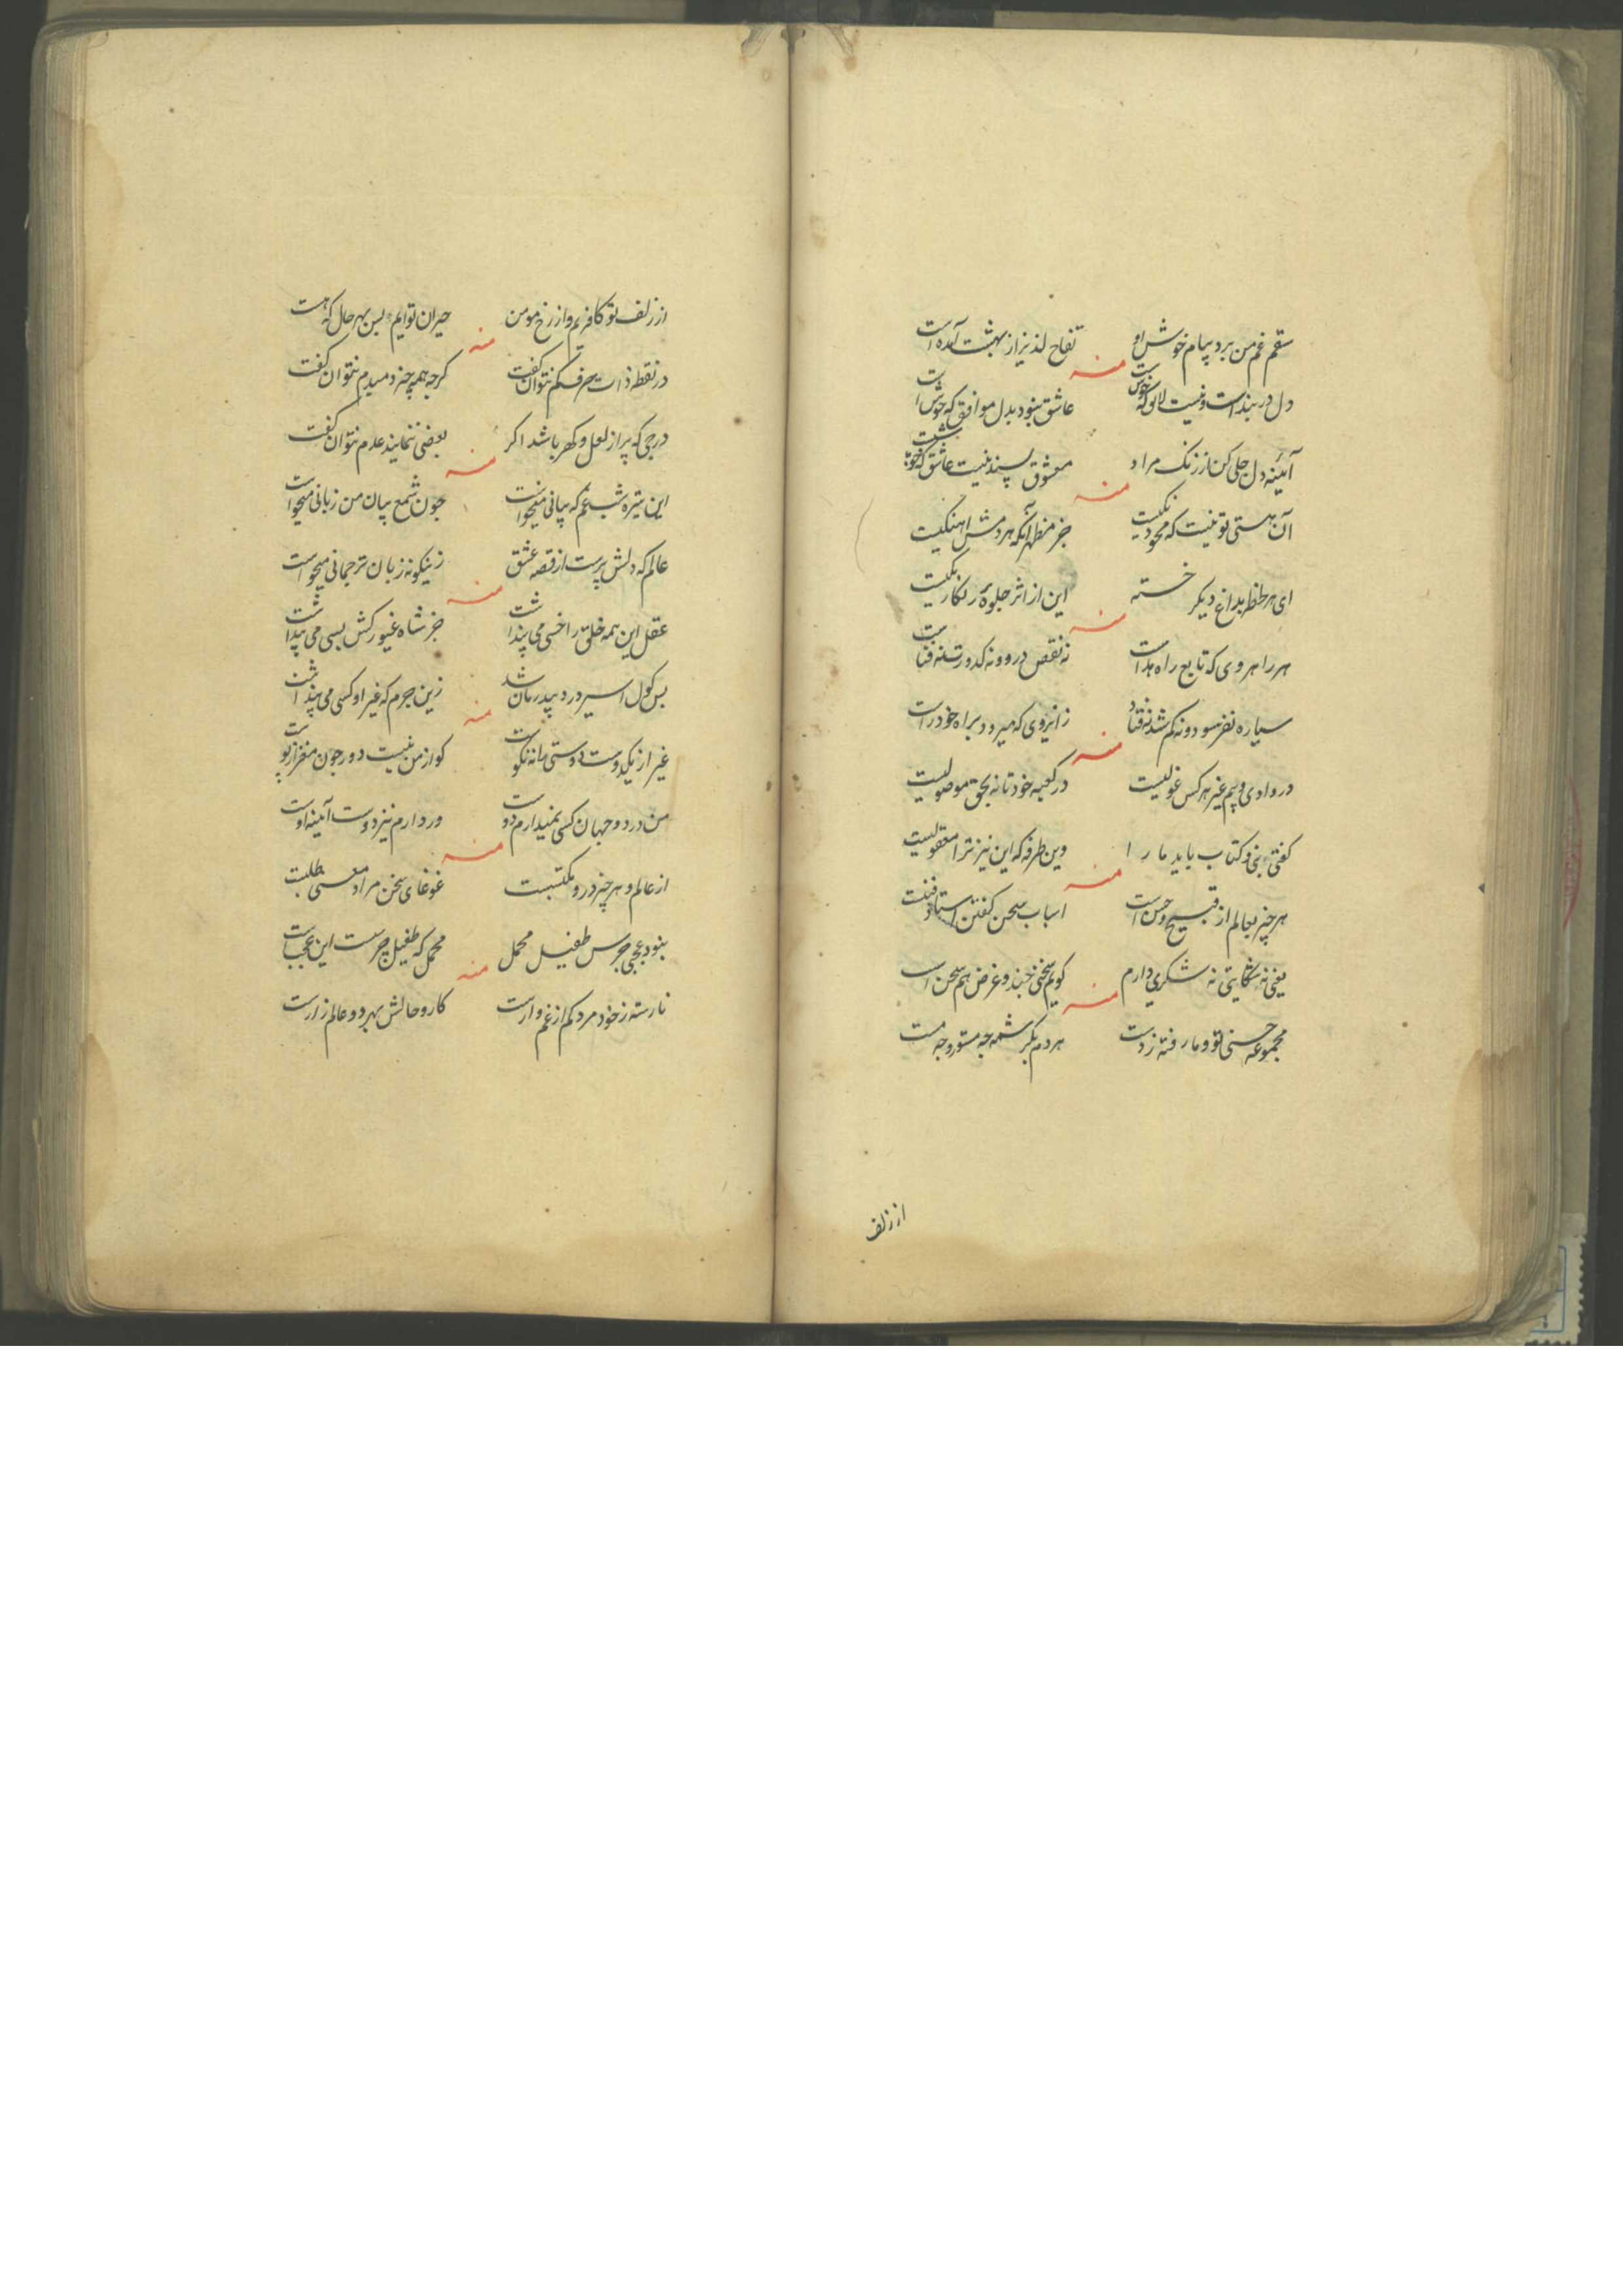 سقم غم من برد پیام خوش او تفاح لذیز از بهشت آمده است
منه
دل در بند است و نیست لالو که خوش است عاشق نبود بدل موافق که خوش است
آئینه دل جلی کن از زنک مراد معشوق پسند نیست عاشق که خوشت
منه
آن هستی تو نیست که محو دیکریست جز مظهر آنکه هر دمش اهنکیست
ای هر لحظه بداغ دیکر خسته این از اثر جلوه رنکارنکیست
منه
هر راهروی که تابع راه هداست نه نقص درو و نه کدورت
سیاره نفرسود و نه کم شد نفتاد زانروی که میرود براه خود راست
منه
در وادی ویم غیر هر کس غولیست در کعبه خود تا نه بحق موصولیست
کفتی نبی و کتاب باید ما را وین طرفه که این نیز ترا معقولیست
منه
هر چیز بعالم از قبیح و حسن است اسباب سخن کفتن استاد
یعنی نه شکایتی نه شکری دارم کویم سخنی چند و غرض هم سخن است
منه
مجموعه حسنی تو و ما رفته ز دست هر دم بکرشمه چه مستور و چه مست
از زلف
از زلف تو کافریم و از رخ مومن حیران توایم بس بهر حال که هست
منه
در نقطه ذات حرف کم نتوان کفت کرچه همه چیز دمبدم نتوان کفت
درجی که پر از لعل و کهر باشد اکر بعضی ننمایند عدم نتوان کفت
منه
این تیره شب غم که بیانی میخواست چون شمع بیان من زبانی میخواست
عالم که دلش پرست از قصه عشق زینکونه زبان ترجمانی میخواست
منه
عقل این همه خلق را خسی می پنداشت جز شاه غیور کش بسی می پنداشت
بس کول اسیر درد بیدرمان شد زین جرم که غیر او کسی می پنداشت
منه
غیر از یکدوست دوستی مانه نکوست کو از من نیست دور چون مغز از پوست
من در دو جهان کسی نمیدارم دوست ور دارم نیز دوست آئینه اوست
منه
از عالم و هر چیز درو مکتسبست غوغای سخن مراد معنی طلبست
نبود عجبی جرس طفیل محمل محمل که طفیل جرست این عجبست
منه
نارسته ز خود مرد کم از غم وارست کار و حالش بهر دو عالم زارست